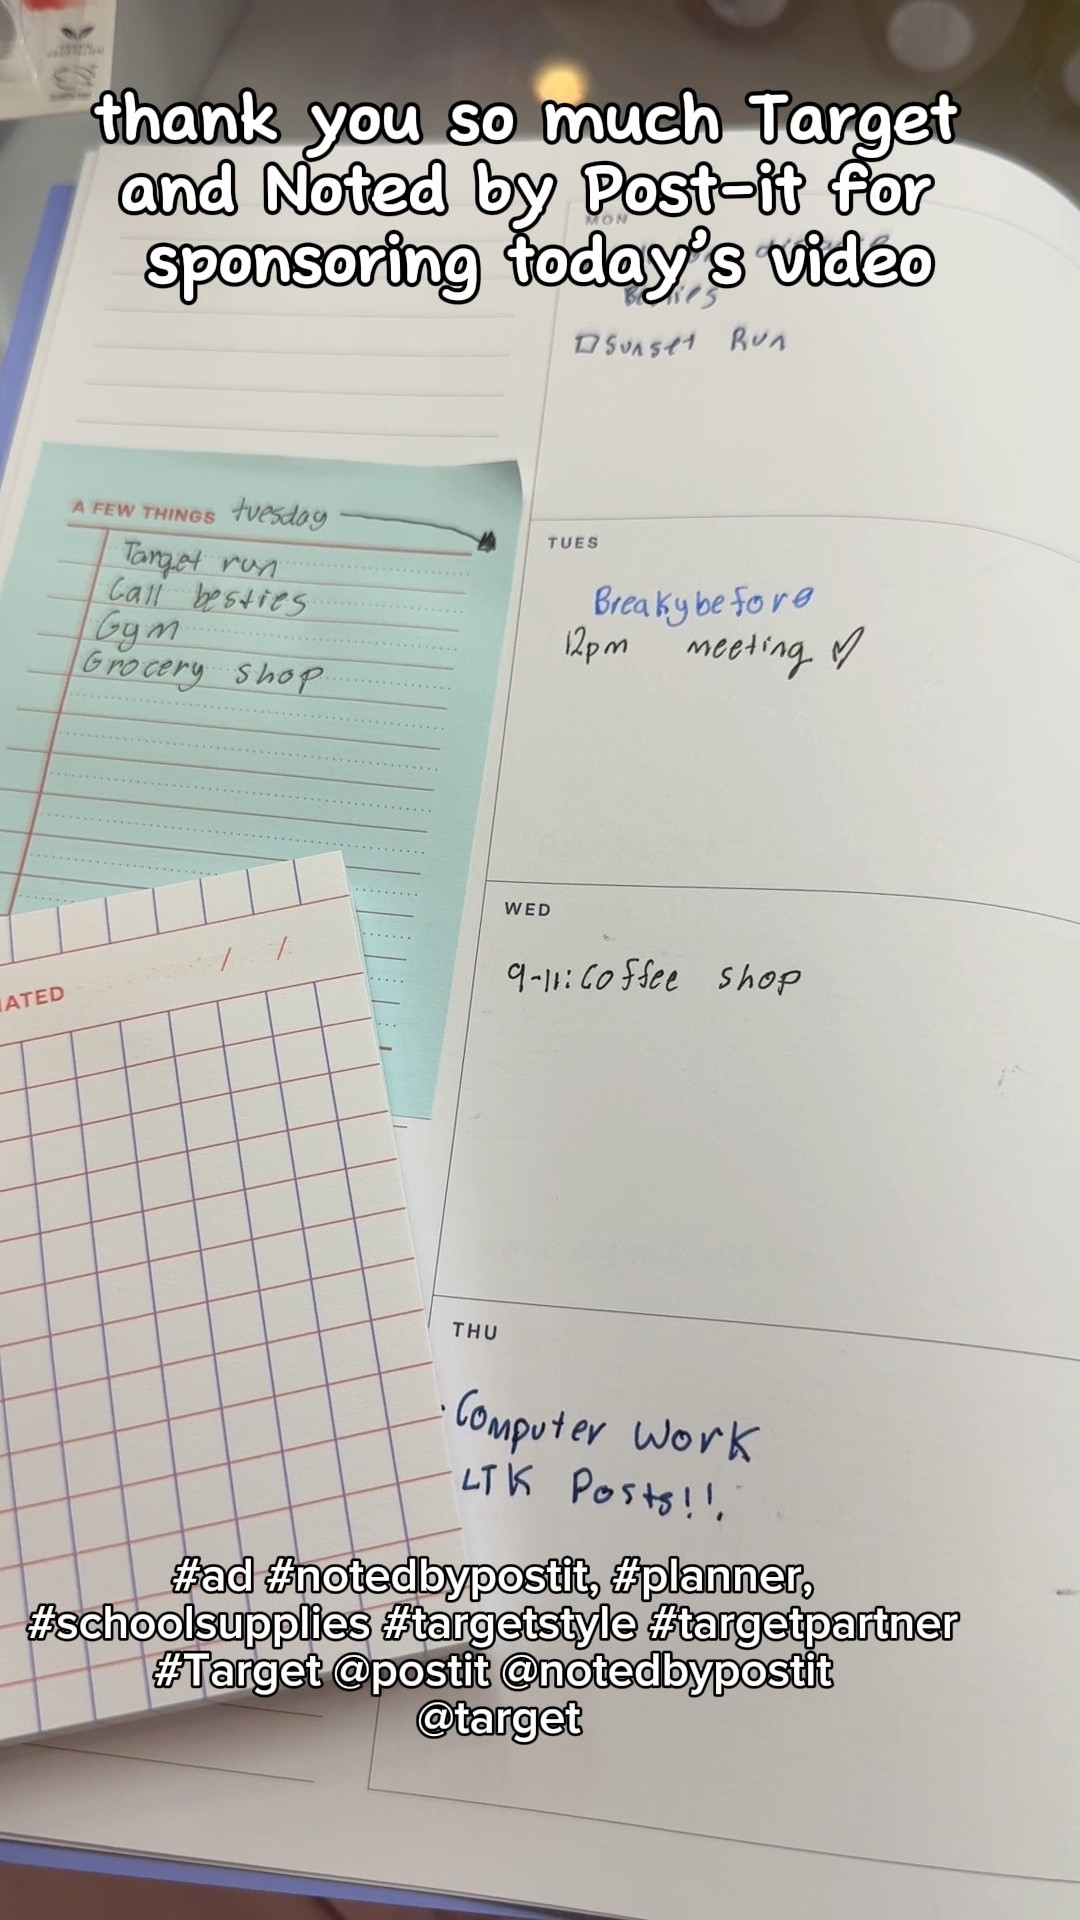 thank you so much Target
and Noted by Post-it for
sponsoring today's video
MON
Besties
Sunset Run
A FEW THINGS tuesday
Target run
Call besties
Gym
Grocery shop
TUES
Breaky before
12pm meeting
WED
9-11: Coffee shop
/ /
THU
Computer Work
LTK Posts!!
#ad #notedbypostit, #planner,
#schoolsupplies #targetstyle #targetpartner
#Target @postit @notedbypostit
@target